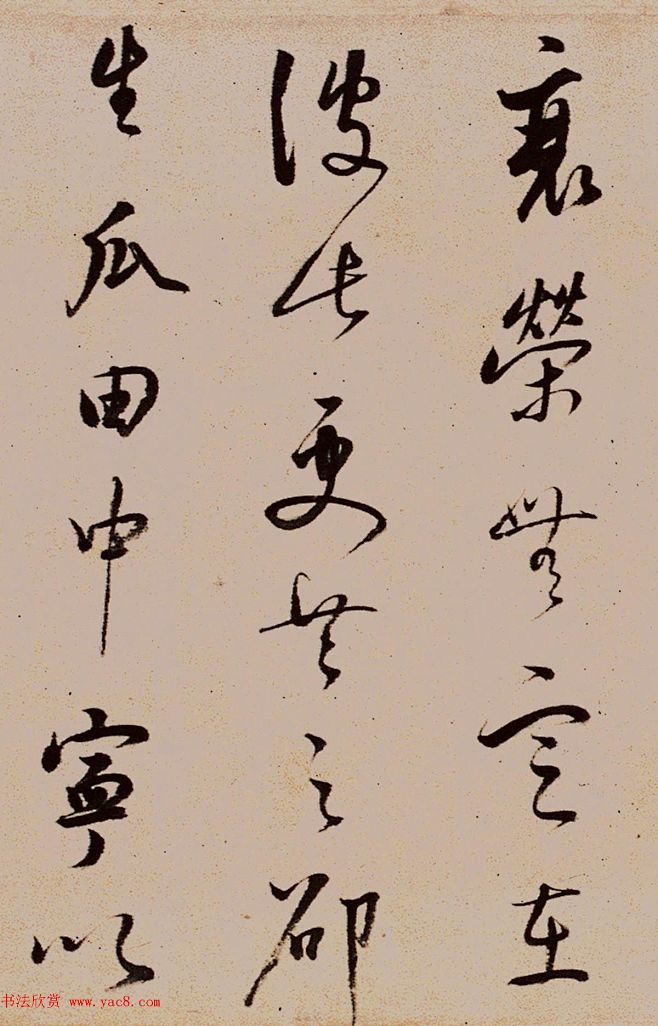 衰榮無定在
彼此更共之邵
生瓜田中寧以
书法欣赏 www.yac8.com